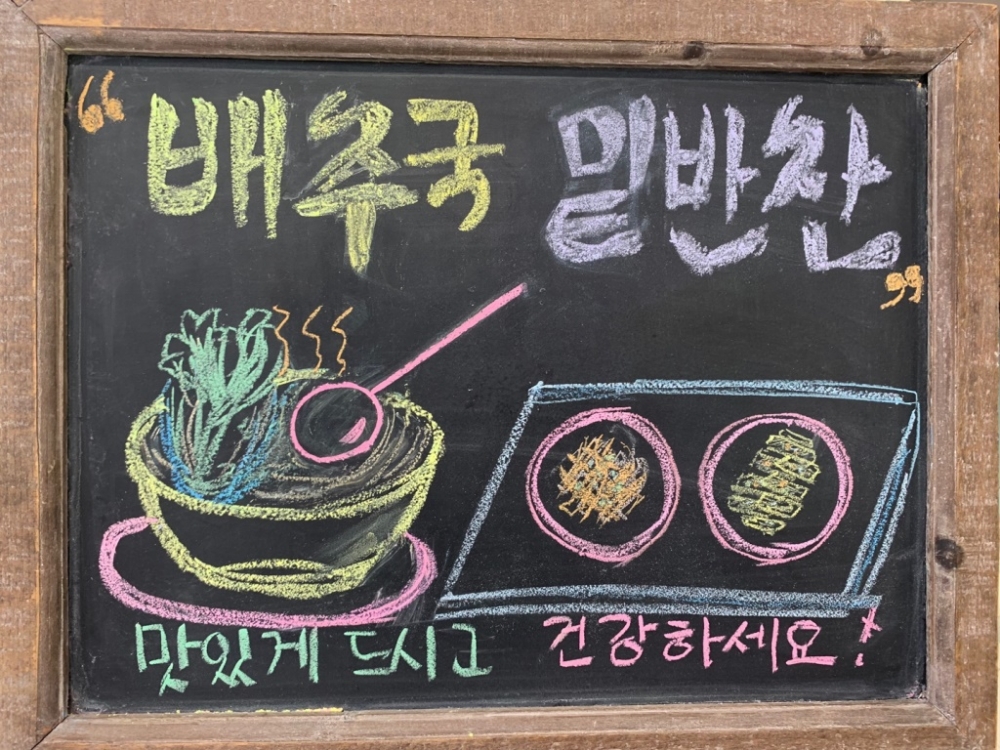 “배추국 밑반찬”
맛있게 드시고 건강하세요!